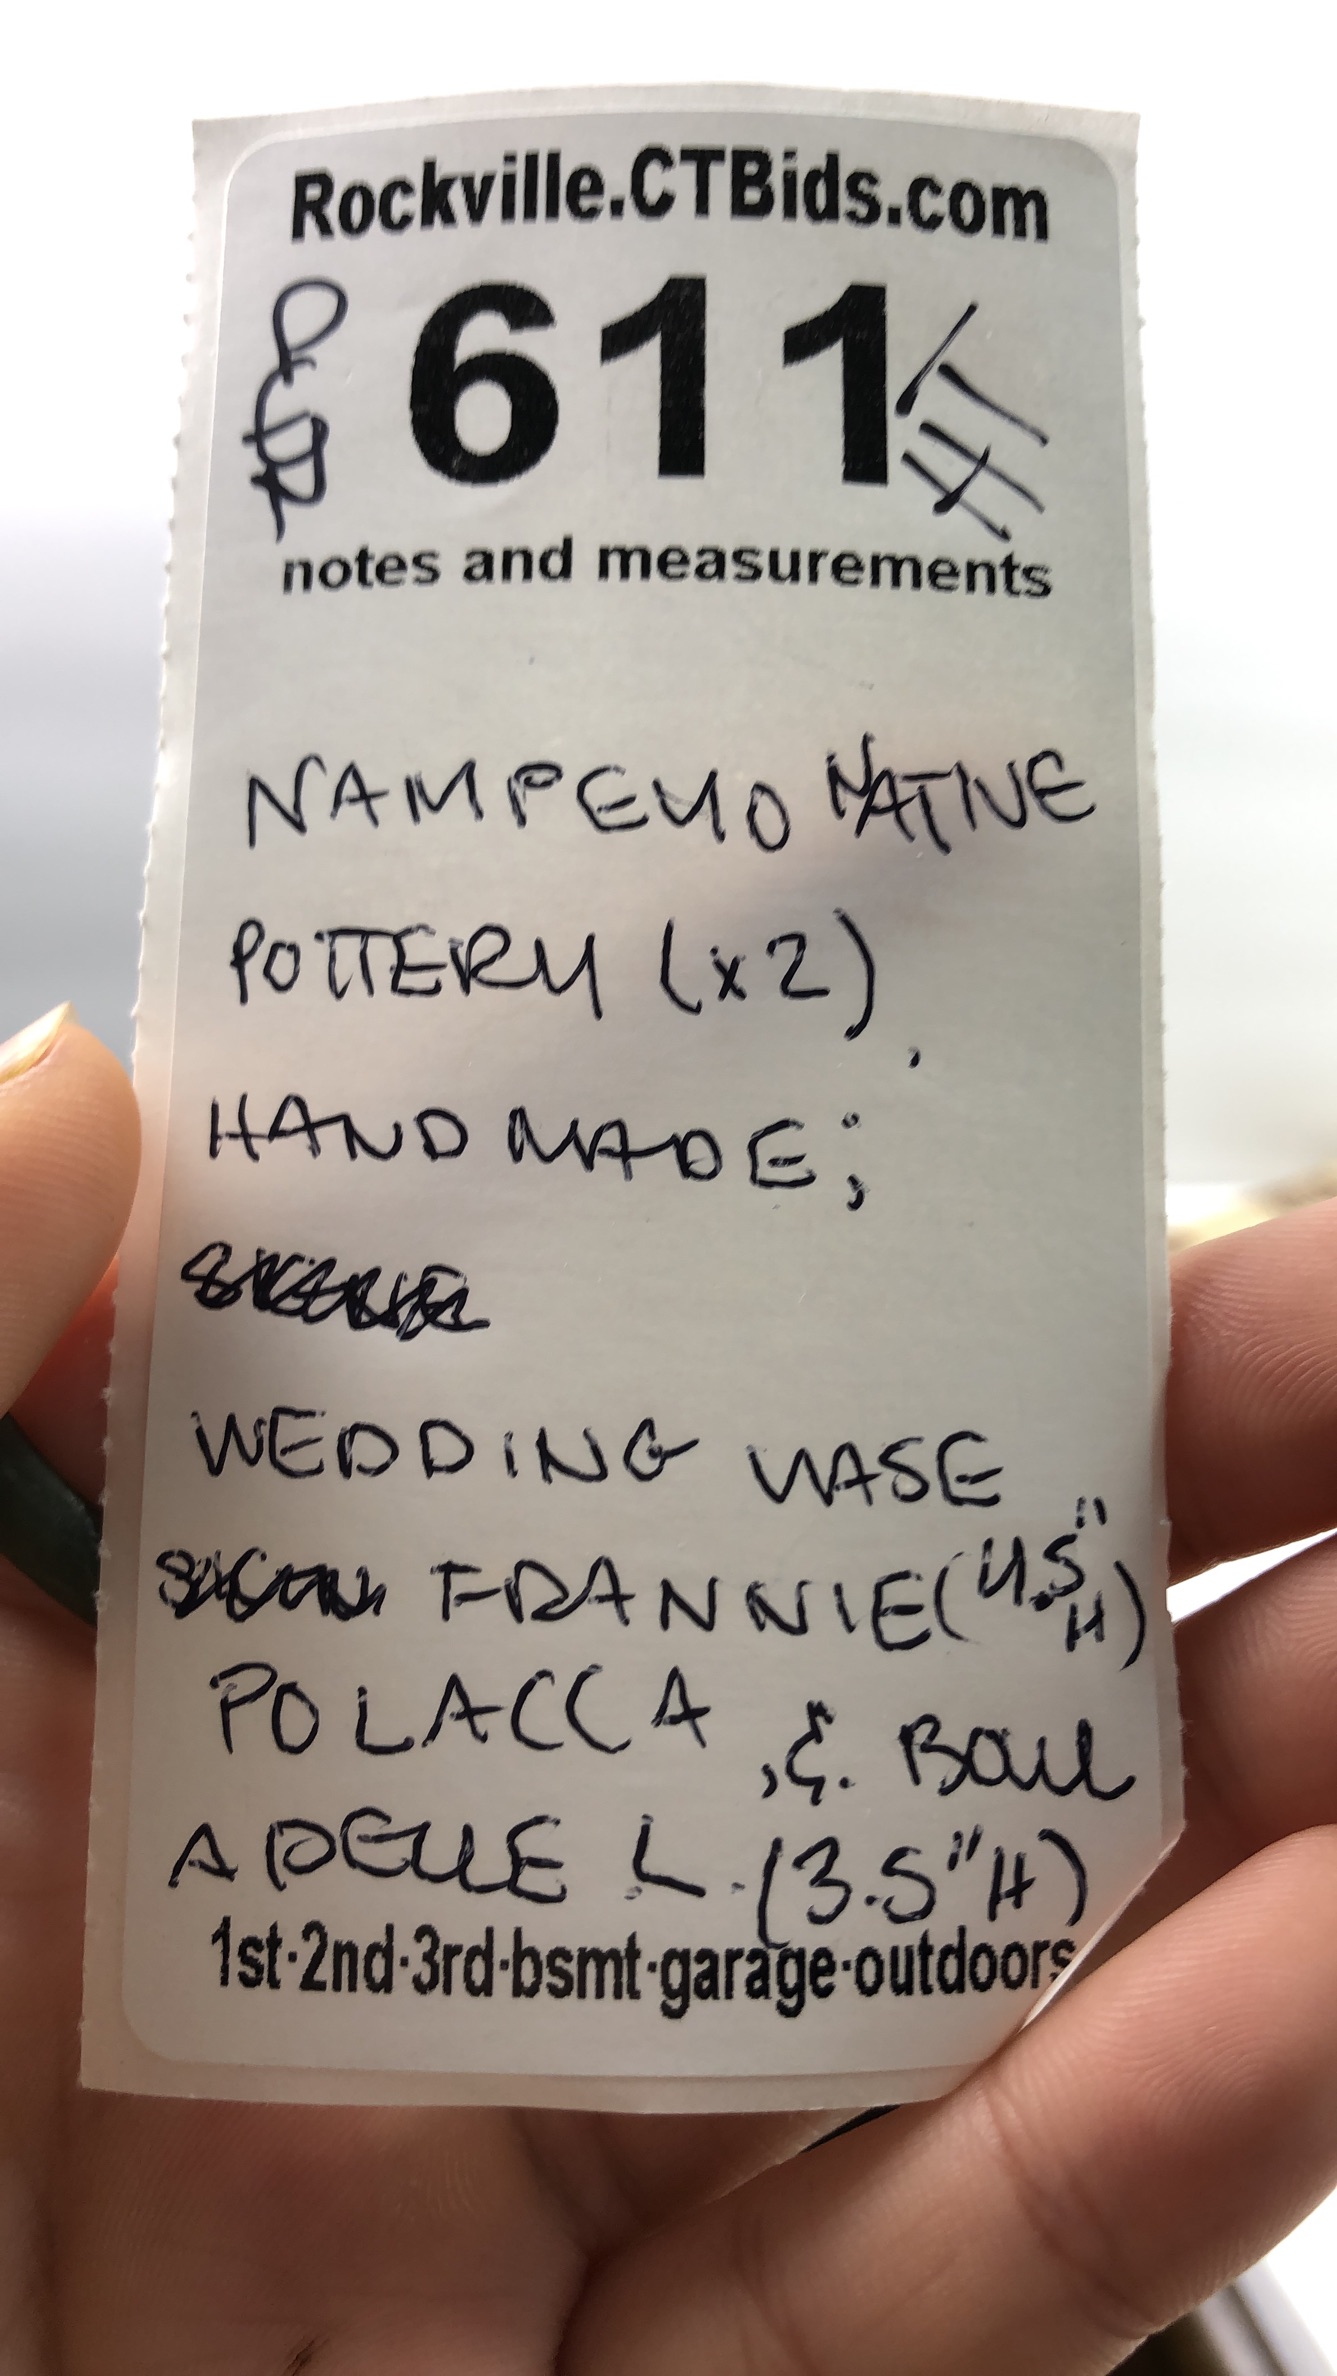 Rockville.CTBids.com
611
notes and measurements
NAMPEYO NATIVE
POTTERY (x2)
HANDMADE;
WEDDING VASE
FRANNIE (4.5" H)
POLACCA, &. BOWL
ADELLE L. (3.5" H)
1st·2nd·3rd·bsmt·garage·outdoors